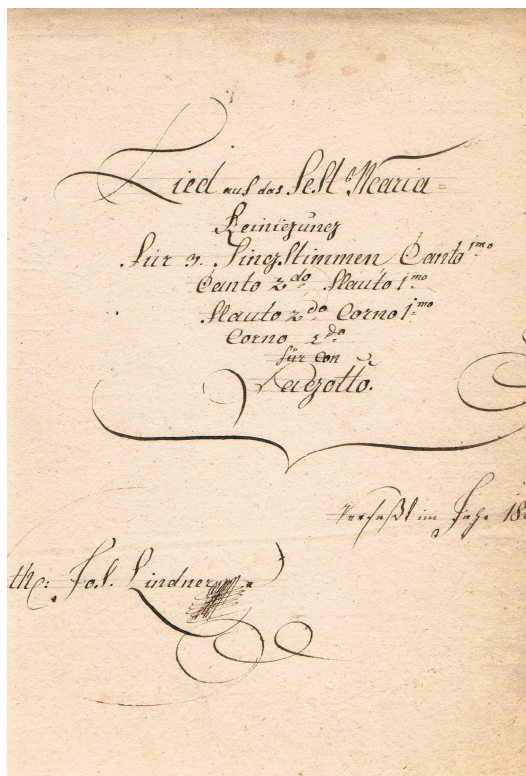 Lied auf das Fest Maria=
Reinigung
Für 3. Singstimmen Canto 1mo
Canto 2do Flauto 1mo
Flauto 2do Corno 1mo
Corno 2do
für con
Fagotto.
Verfaßt im Jahr 18
th: Jos. Lindner